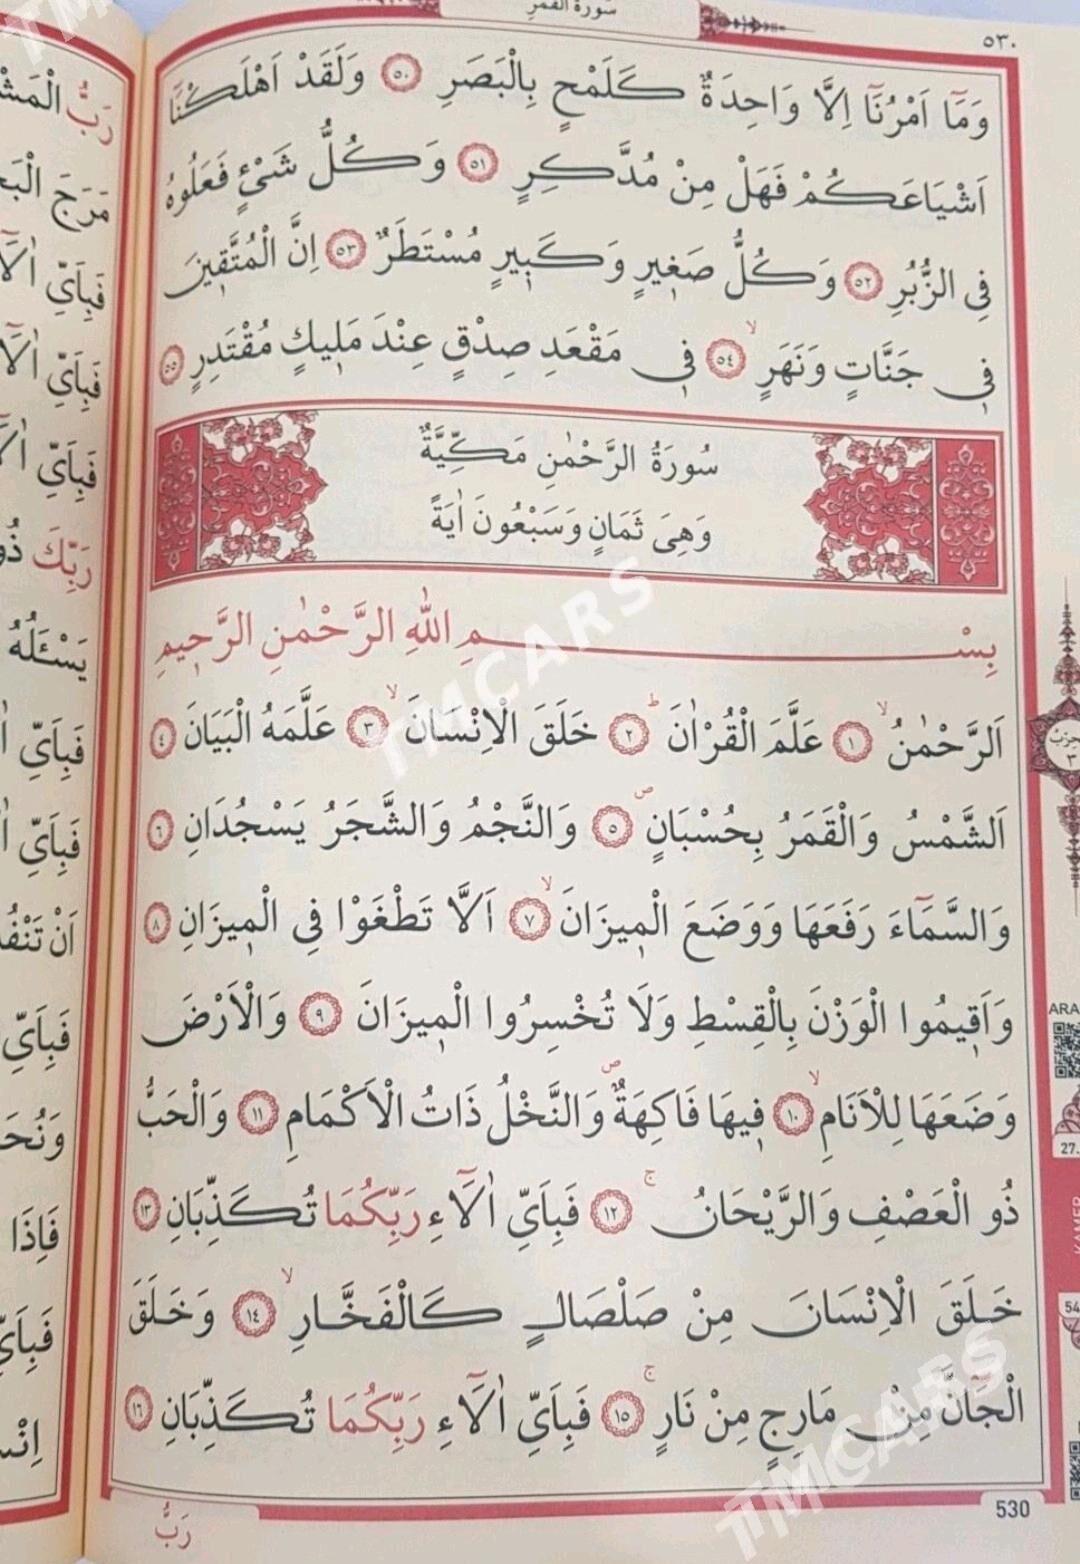 سورة القمر
٥٣٠
وَمَٓا اَمْرُنَٓا اِلَّا وَاحِدَةٌ كَلَمْحٍ بِالْبَصَرِ ٥٠ وَلَقَدْ اَهْلَكْنَٓا
اَشْيَاعَكُمْ فَهَلْ مِنْ مُدَّكِرٍ ٥١ وَكُلُّ شَيْءٍ فَعَلُوهُ
فِي الزُّبُرِ ٥٢ وَكُلُّ صَغ۪يرٍ وَكَب۪يرٍ مُسْتَطَرٌ ٥٣ اِنَّ الْمُتَّق۪ينَ
ف۪ي جَنَّاتٍ وَنَهَرٍۙ ٥٤ ف۪ي مَقْعَدِ صِدْقٍ عِنْدَ مَل۪يكٍ مُقْتَدِرٍ ٥٥
سُورَةُ الرَّحْمٰنِ مَكِّيَّةٌ
وَهِيَ ثَمَانٍ وَسَبْعُونَ اٰيَةً
بِسْمِ اللّٰهِ الرَّحْمٰنِ الرَّح۪يمِ
اَلرَّحْمٰنُۙ ١ عَلَّمَ الْقُرْاٰنَۜ ٢ خَلَقَ الْاِنْسَانَۙ ٣ عَلَّمَهُ الْبَيَانَ ٤
اَلشَّمْسُ وَالْقَمَرُ بِحُسْبَانٍۖ ٥ وَالنَّجْمُ وَالشَّجَرُ يَسْجُدَانِ ٦
وَالسَّمَٓاءَ رَفَعَهَا وَوَضَعَ الْم۪يزَانَۙ ٧ اَلَّا تَطْغَوْا فِي الْم۪يزَانِ ٨
وَاَق۪يمُوا الْوَزْنَ بِالْقِسْطِ وَلَا تُخْسِرُوا الْم۪يزَانَ ٩ وَالْاَرْضَ
وَضَعَهَا لِلْاَنَامِۙ ١٠ ف۪يهَا فَاكِهَةٌۖ وَالنَّخْلُ ذَاتُ الْاَكْمَامِ ١١ وَالْحَبُّ
ذُو الْعَصْفِ وَالرَّيْحَانُۚ ١٢ فَبِاَيِّ اٰلَٓاءِ رَبِّكُمَا تُكَذِّبَانِ ١٣
خَلَقَ الْاِنْسَانَ مِنْ صَلْصَالٍ كَالْفَخَّارِۙ ١٤ وَخَلَقَ
الْجَٓانَّ مِنْ مَارِجٍ مِنْ نَارٍۚ ١٥ فَبِاَيِّ اٰلَٓاءِ رَبِّكُمَا تُكَذِّبَانِ ١٦
530
رَبُّ
حزب
٣
ARA
27.
KAMER
54
رَبُّ
مَرَجَ
فَبِاَيِّ
فَبِاَيِّ
فَبِاَيِّ
رَبِّكَ
يَسْـَٔلُهُ
فَبِاَيِّ
فَبِاَيِّ
اَنْ
فَبِاَيِّ
فَاِذَا
TMCARS
TMCARS